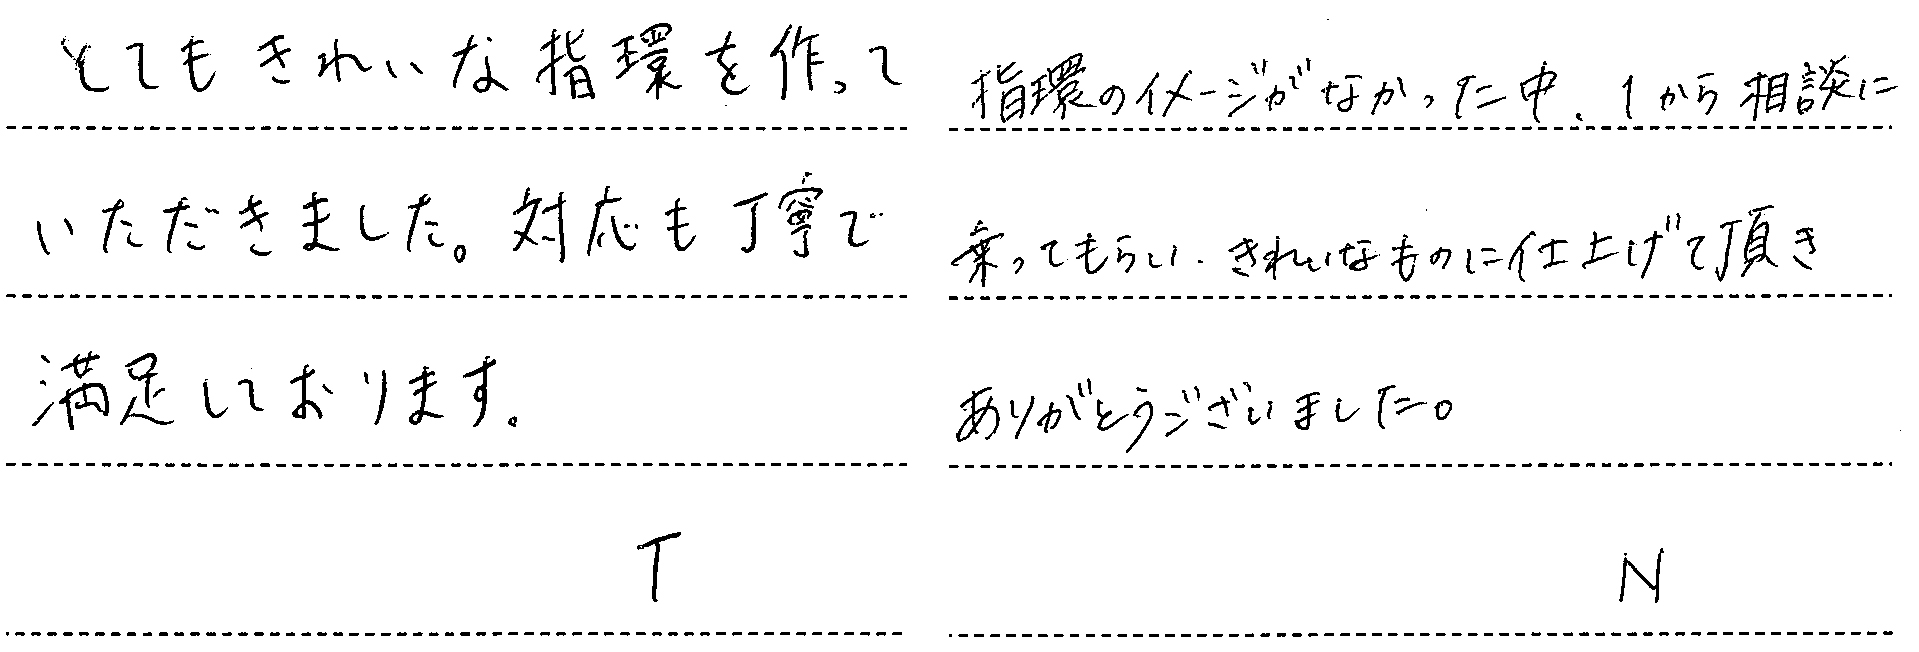 とてもきれいな指環を作って
いただきました。対応も丁寧で
満足しております。
T
指環のイメージがなかった中、1から相談に
乗ってもらい、きれいなものに仕上げて頂き
ありがとうございました。
N